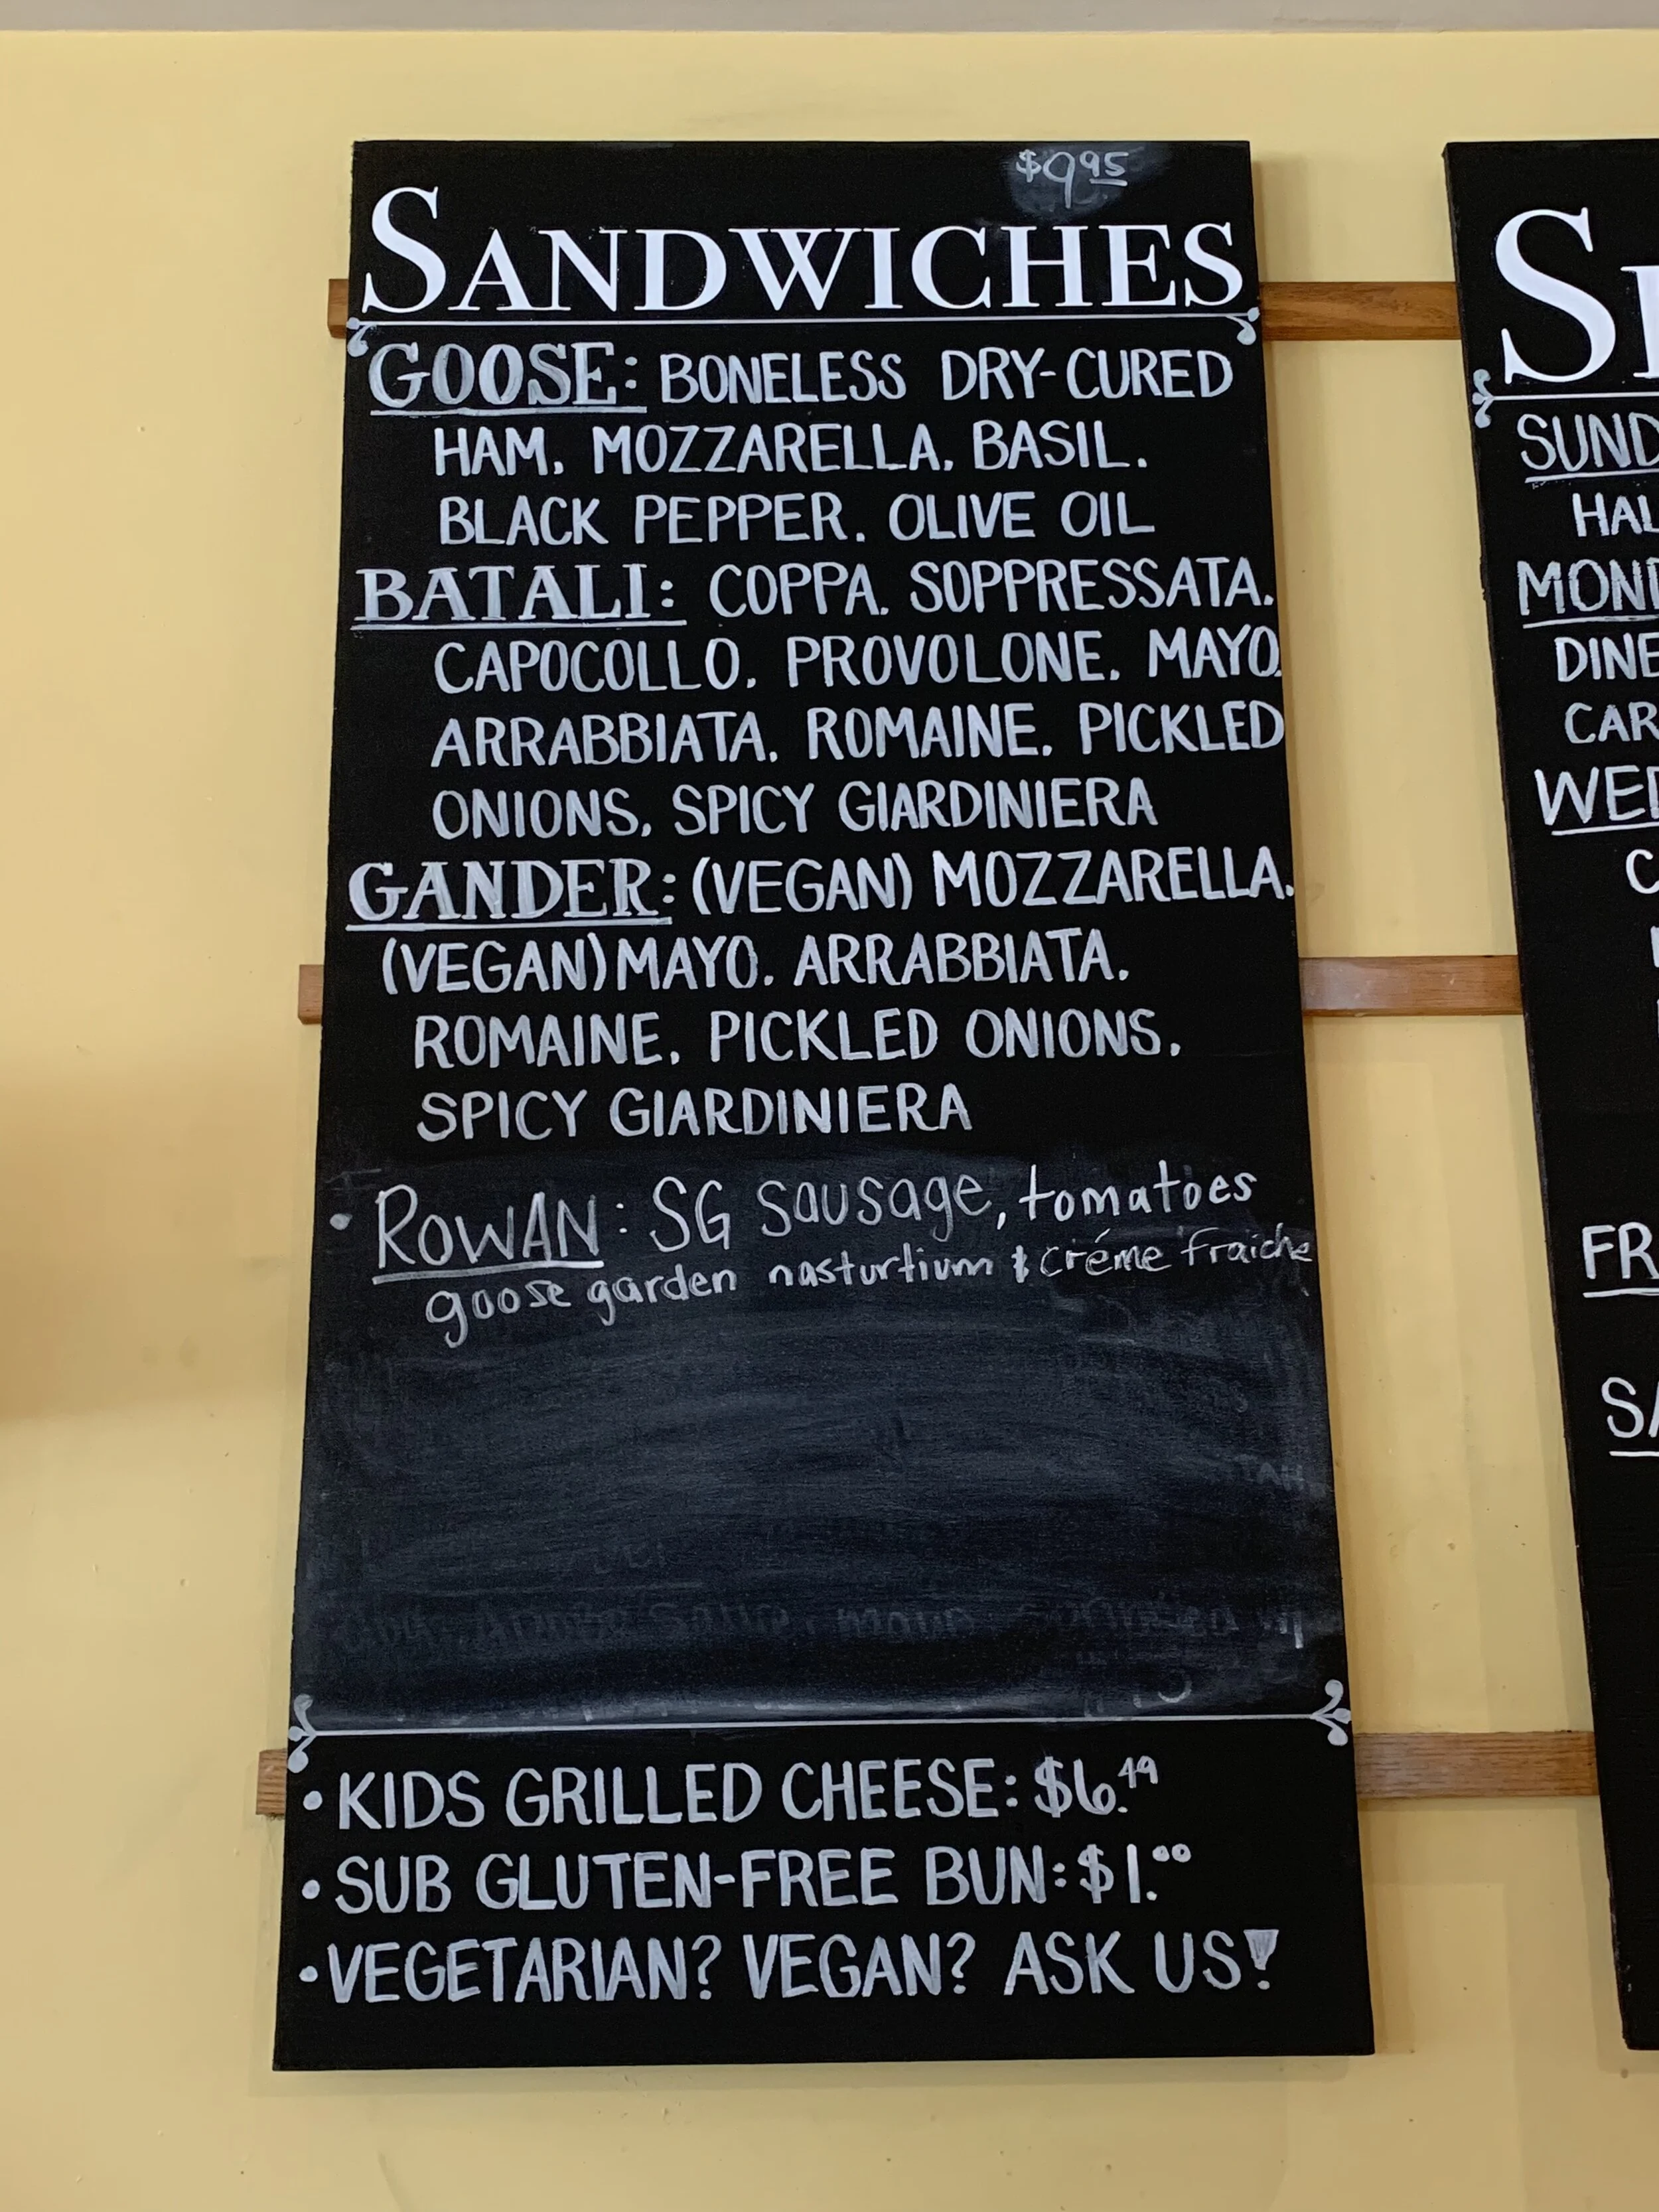 $9.95
SANDWICHES
GOOSE: BONELESS DRY-CURED
HAM, MOZZARELLA, BASIL,
BLACK PEPPER, OLIVE OIL
BATALI: COPPA, SOPPRESSATA,
CAPOCOLLO, PROVOLONE, MAYO,
ARRABBIATA, ROMAINE, PICKLED
ONIONS, SPICY GIARDINIERA
GANDER: (VEGAN) MOZZARELLA,
(VEGAN) MAYO, ARRABBIATA,
ROMAINE, PICKLED ONIONS,
SPICY GIARDINIERA
• ROWAN: SG Sausage, tomatoes
goose garden nasturtium & créme fraiche
• KIDS GRILLED CHEESE: $6.49
• SUB GLUTEN-FREE BUN: $1.00
• VEGETARIAN? VEGAN? ASK US!
SUND
HAL
MOND
DINE
CAR
WED
FR
SA